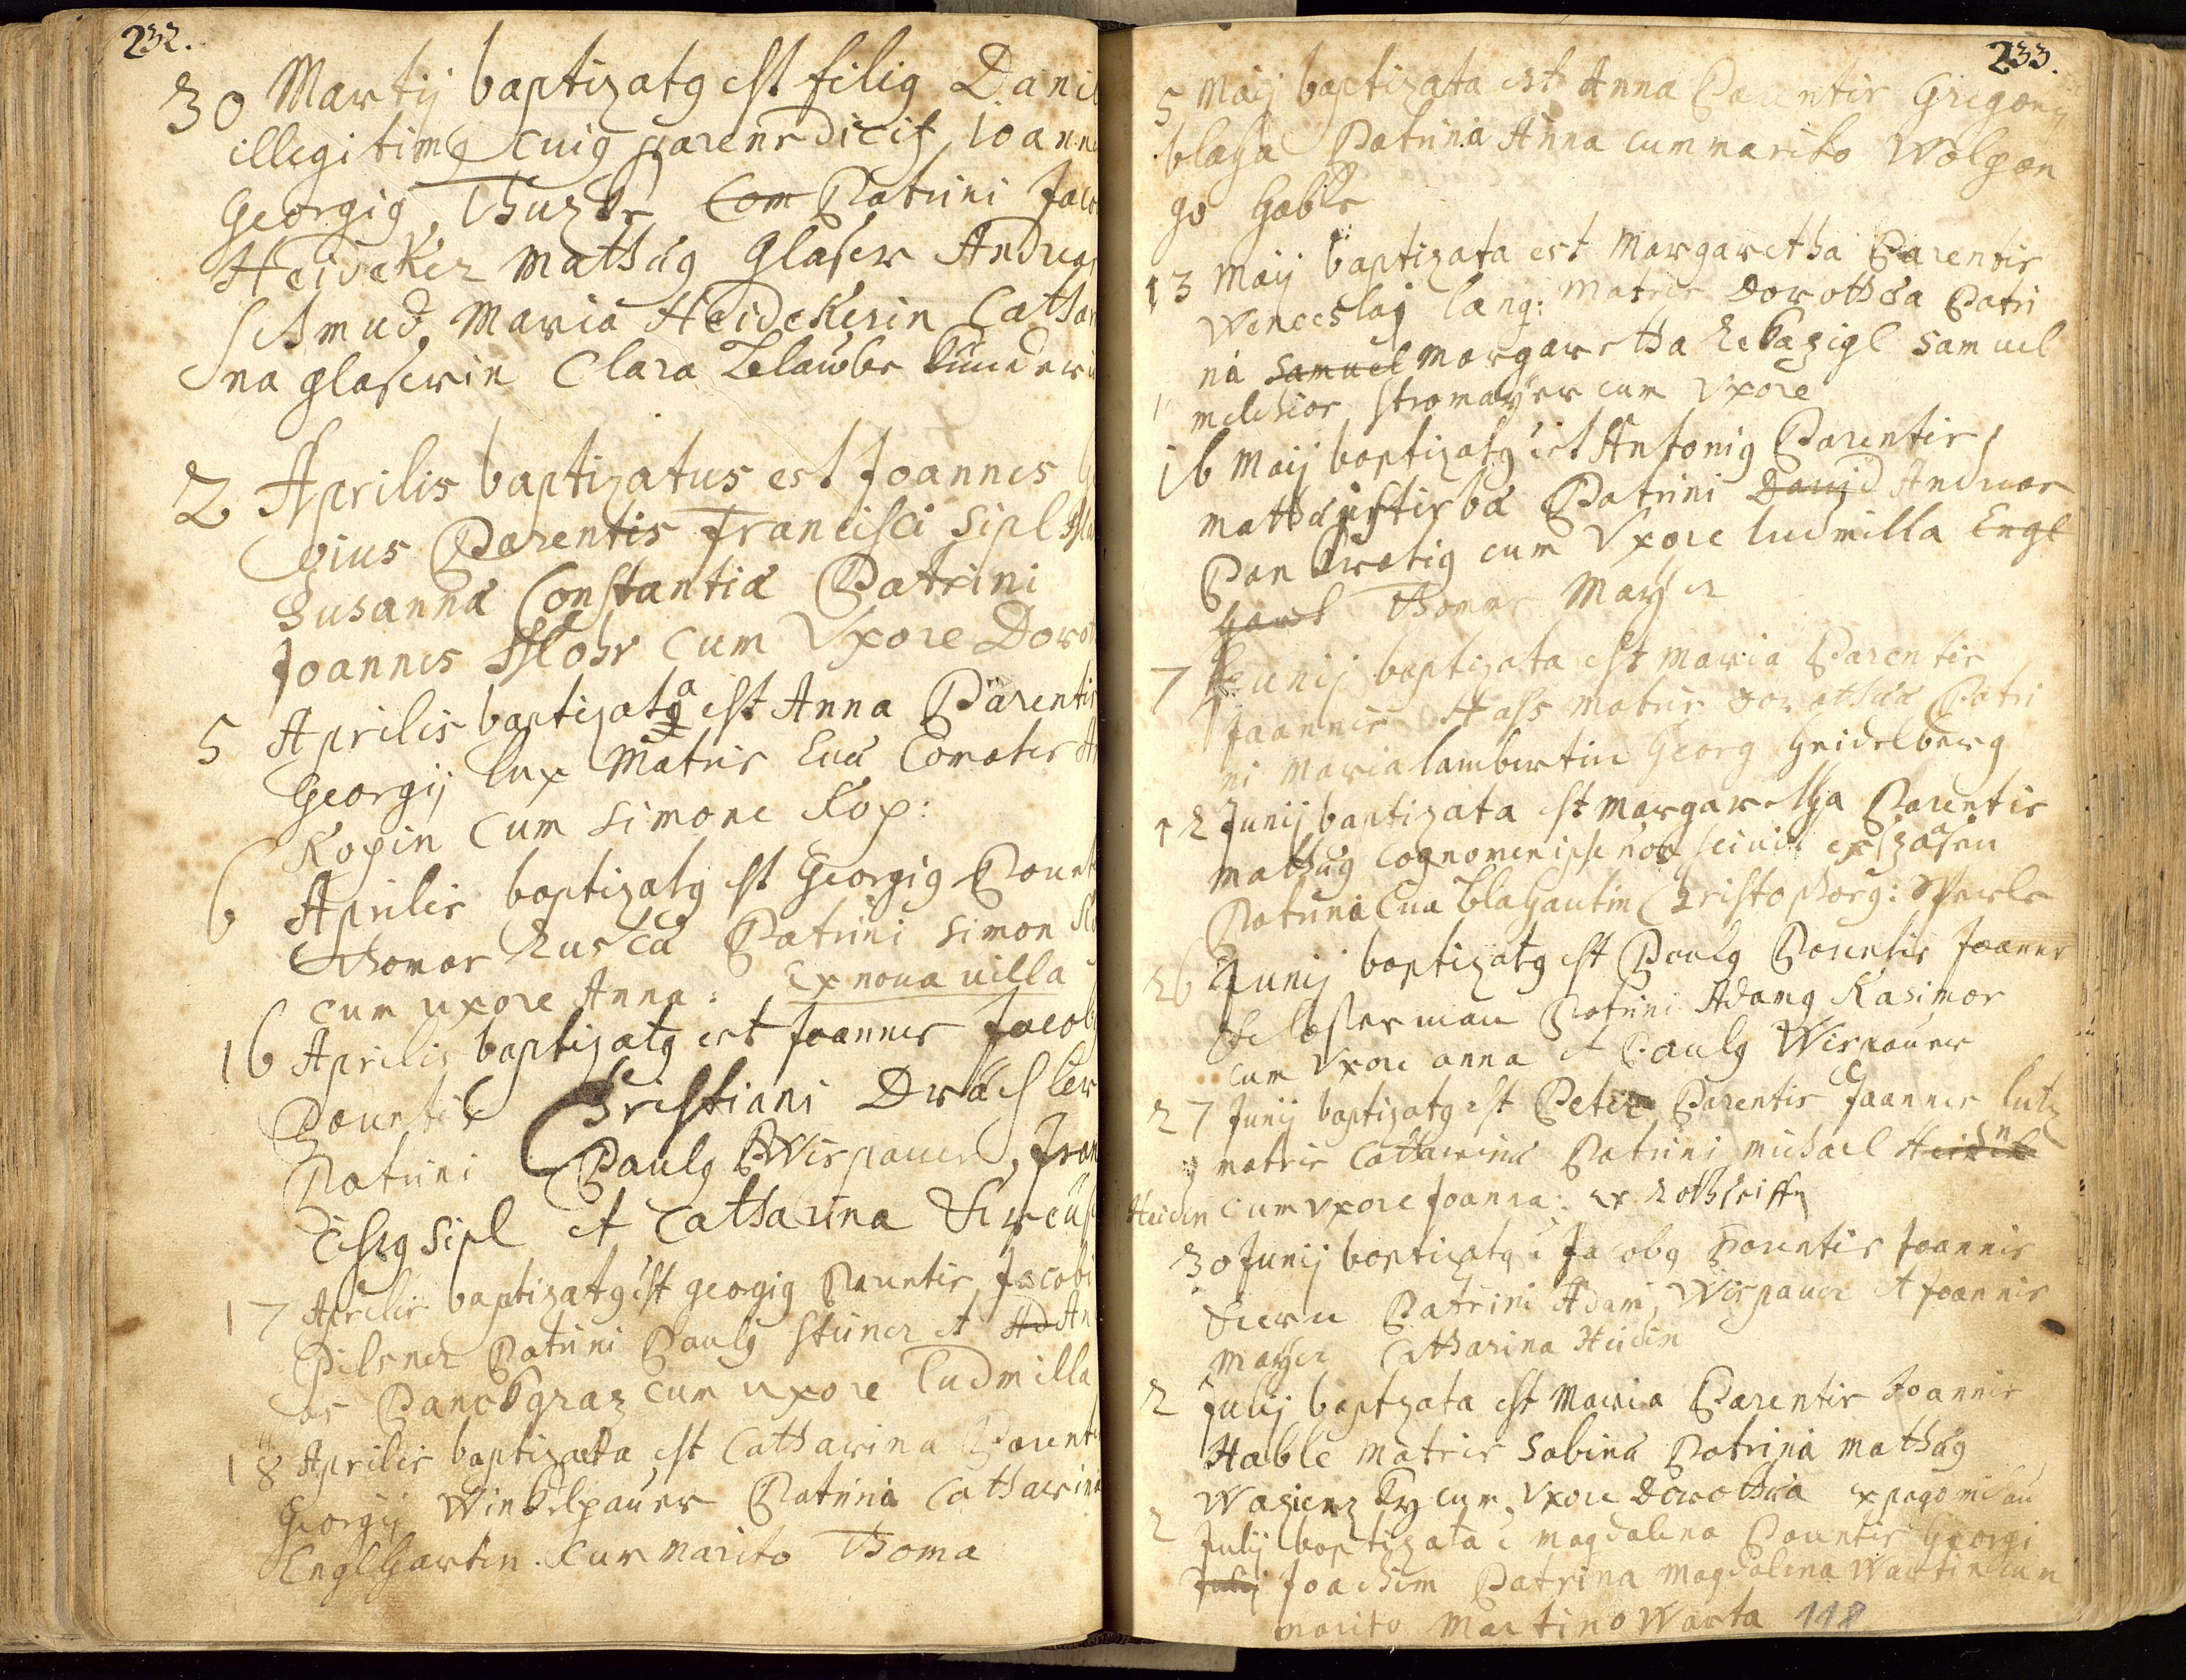 232.
30 Martij baptizatg est filig Dani
illegitimg cuig parens dicit Joann
Georgig Com Patrini Jaco
Heideker Mathæg Glaser Andreas
Schmud, Maria Heidekerin Catha
na Glaserin Clara
2 Aprilis baptizatus est Joannes
gius Parentis Francisci Sipl
Susannæ Constantiæ Patrini
Joannes Flohr cum Vxore Doro
5 Aprilis baptizata est Anna Parentis
Georgij Lux Matris Euæ Comater
Kopin cum Simone Kop:
6 Aprilis baptizatg est Georgig Parent
Thomas Patrini Simon
cum uxore Anna: Ex noua uilla
16 Aprilis baptizatg est Joannes Jacob
Parentis Christiani Dräxler
Patrini Paulg Wispauer, Fran
ciscg Sipl et Catharina
17 Aprilis baptizatg est Georgig Parentis Jacobi
Pilsner Patrini Paulg Stüner et Ad An
as Panckgraz cum uxore Ludmilla
18 Aprilis baptizata est Catharina Parent
Georgij Winkelpauer Patrina Catharina
Englhartin cum marito Thoma
233.
5 Maij baptizata est Anna Parentis Gregorij
blaha Patrina Anna cum marito Wolgan
go Hable
13 Maij baptizata est Margaretha Parentis
Wenceslaj Lang: Matris Dorothæa Patri
na Samuel Margaretha Samuel
Melchior Stromayer cum Vxore
16 Maij baptizatg est Antonig Parentis
Mathæj Patrini Dauid Andreas
Pankratig cum Vxore Ludmilla Engl
hart Thomas Mayer
7 Junij baptizata est Maria Parentis
Joannis Hass Matris Dorotheæ Patri
ni Maria Lambertin Georg Heidelberg
12 Junij baptizata est Margaretha Parentis
Mathæg cognomen ipse non sciuit ex
Patrina Eua Blahautin Christophorg:
26 Junij baptizatg est Paulg Parentis Joannes
Schlosserman Patrini Adamg Kasimor
cum Vxore Anna et Paulg Wispauer
27 Junij baptizatg est Peter Parentis Joannes Lutz
matris Catharina Patrini Michael
Heiden cum Vxore Joanna: ex
30 Junij baptizatg e Jacobg Parentis Joannis
Patrini Adam Wispauer et Joannes
Mayer Catharina Heidin
2 Julij baptizata est Maria Parentis Joannis
Hable Matris Sabinæ Patrina Mathæg
cum Vxore Dorothea ex pago
2 Julij baptizata e Magdalena Parentis Georgi
Julij Joachim Patrina Magdalena Wartin cum
marito Martino Warta 118